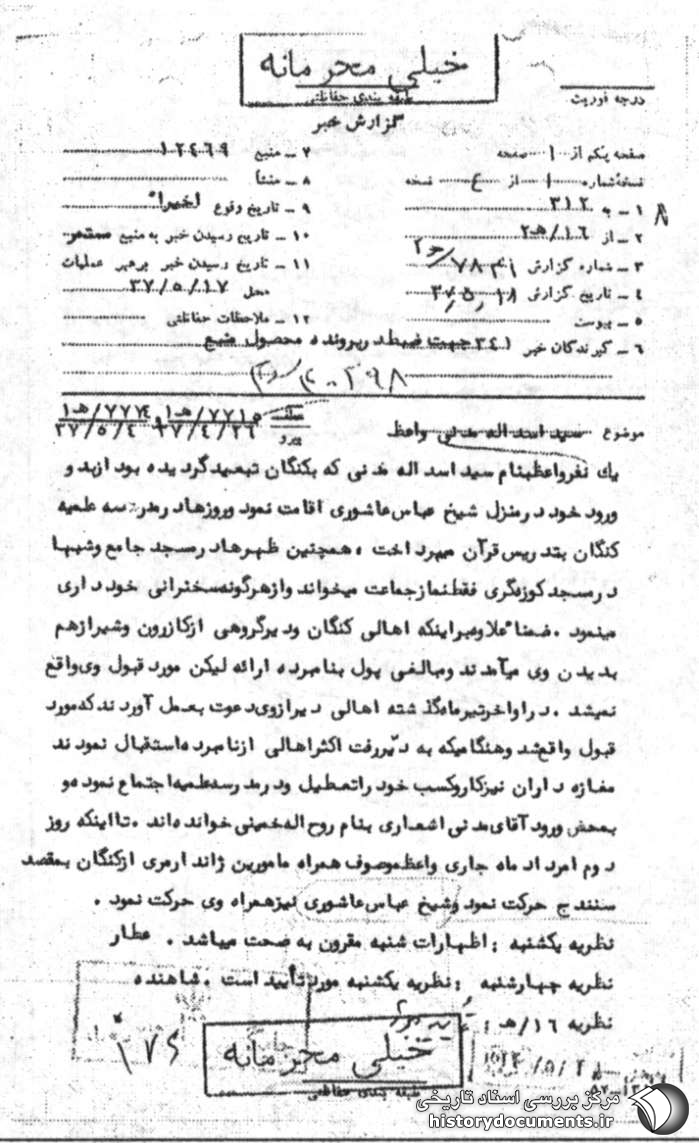 خیلی محرمانه
طبقه بندی حفاظتی
درجه فوریت
گزارش خبر
صفحه یکم از ۱ صفحه
نسخه شماره ۱ از ٤ نسخه
۱ ـ به ۳۱۲
۲ ـ از ۱٦/هـ۲
۳ ـ شماره گزارش
٤ ـ تاریخ گزارش ۳۷/۵/۱۸
۵ ـ پیوست
٦ ـ گیرندگان خبر ۳٤۱ جهت ضبط در پرونده محصول منبع
۷ ـ منبع ۱۰۲٤٦۹
۸ ـ منشأ
۹ ـ تاریخ وقوع اخیرا"
۱۰ ـ تاریخ رسیدن خبر به منبع مستمر
۱۱ ـ تاریخ رسیدن خبر برهبر عملیات
محل ۳۷/۵/۱۷
۱۲ ـ ملاحظات حفاظتی
موضوع سید اسد اله مدنی واعظ
پیرو ۷۷۱۵/هـ۱ ۷۷۷٤/هـ۱
۳۷/٤/۲٦ ۳۷/۵/٤
یك نفرواعظ بنام سید اسد اله مدنی که بکنگان تبعید گردیده بود ازبدو
ورود خود درمنزل شیخ عباس عاشوری اقامت نمود وروزها درمدرسه علمیه
کنگان بتدریس قرآن میپرداخت ، همچنین ظهرها درمسجد جامع وشبها
درمسجد کوزه‌گری فقط نماز جماعت میخواند وازهرگونه سخنرانی خود داری
مینمود . ضمنا" علاوه براینکه اهالی کنگان ودیر گروهی ازکازرون وشیرازهم
بدیدن وی می‌آمدند ومبالغی پول بنامبرده ارائه لیکن مورد قبول وی واقع
نمیشد . دراواخرتیرماه گذشته اهالی دیرازوی دعوت بعمل آوردند که مورد
قبول واقع شد وهنگامیکه به دیّر رفت اکثراهالی ازنامبرده استقبال نمودند
مغازه داران نیز کاروکسب خود راتعطیل ودرمدرسه علمیه اجتماع نموده و
بمحض ورود آقای مدنی اشعاری بنام روح اله خمینی خوانده‌اند . تااینکه روز
دوم امرداد ماه جاری واعظ موصوف همراه مامورین ژاندارمری ازکنگان بمقصد
سنندج حرکت نمود وشیخ عباس عاشوری نیز همراه وی حرکت نمود .
نظریه یکشنبه : اظهارات شنبه مقرون به صحت میباشد . عطار
نظریه چهارشنبه : نظریه یکشنبه مورد تأیید است . شاهنده
نظریه ۱٦/هـ :
خیلی محرمانه
طبقه بندی حفاظتی
مرکز بررسی اسناد تاریخی
historydocuments.ir